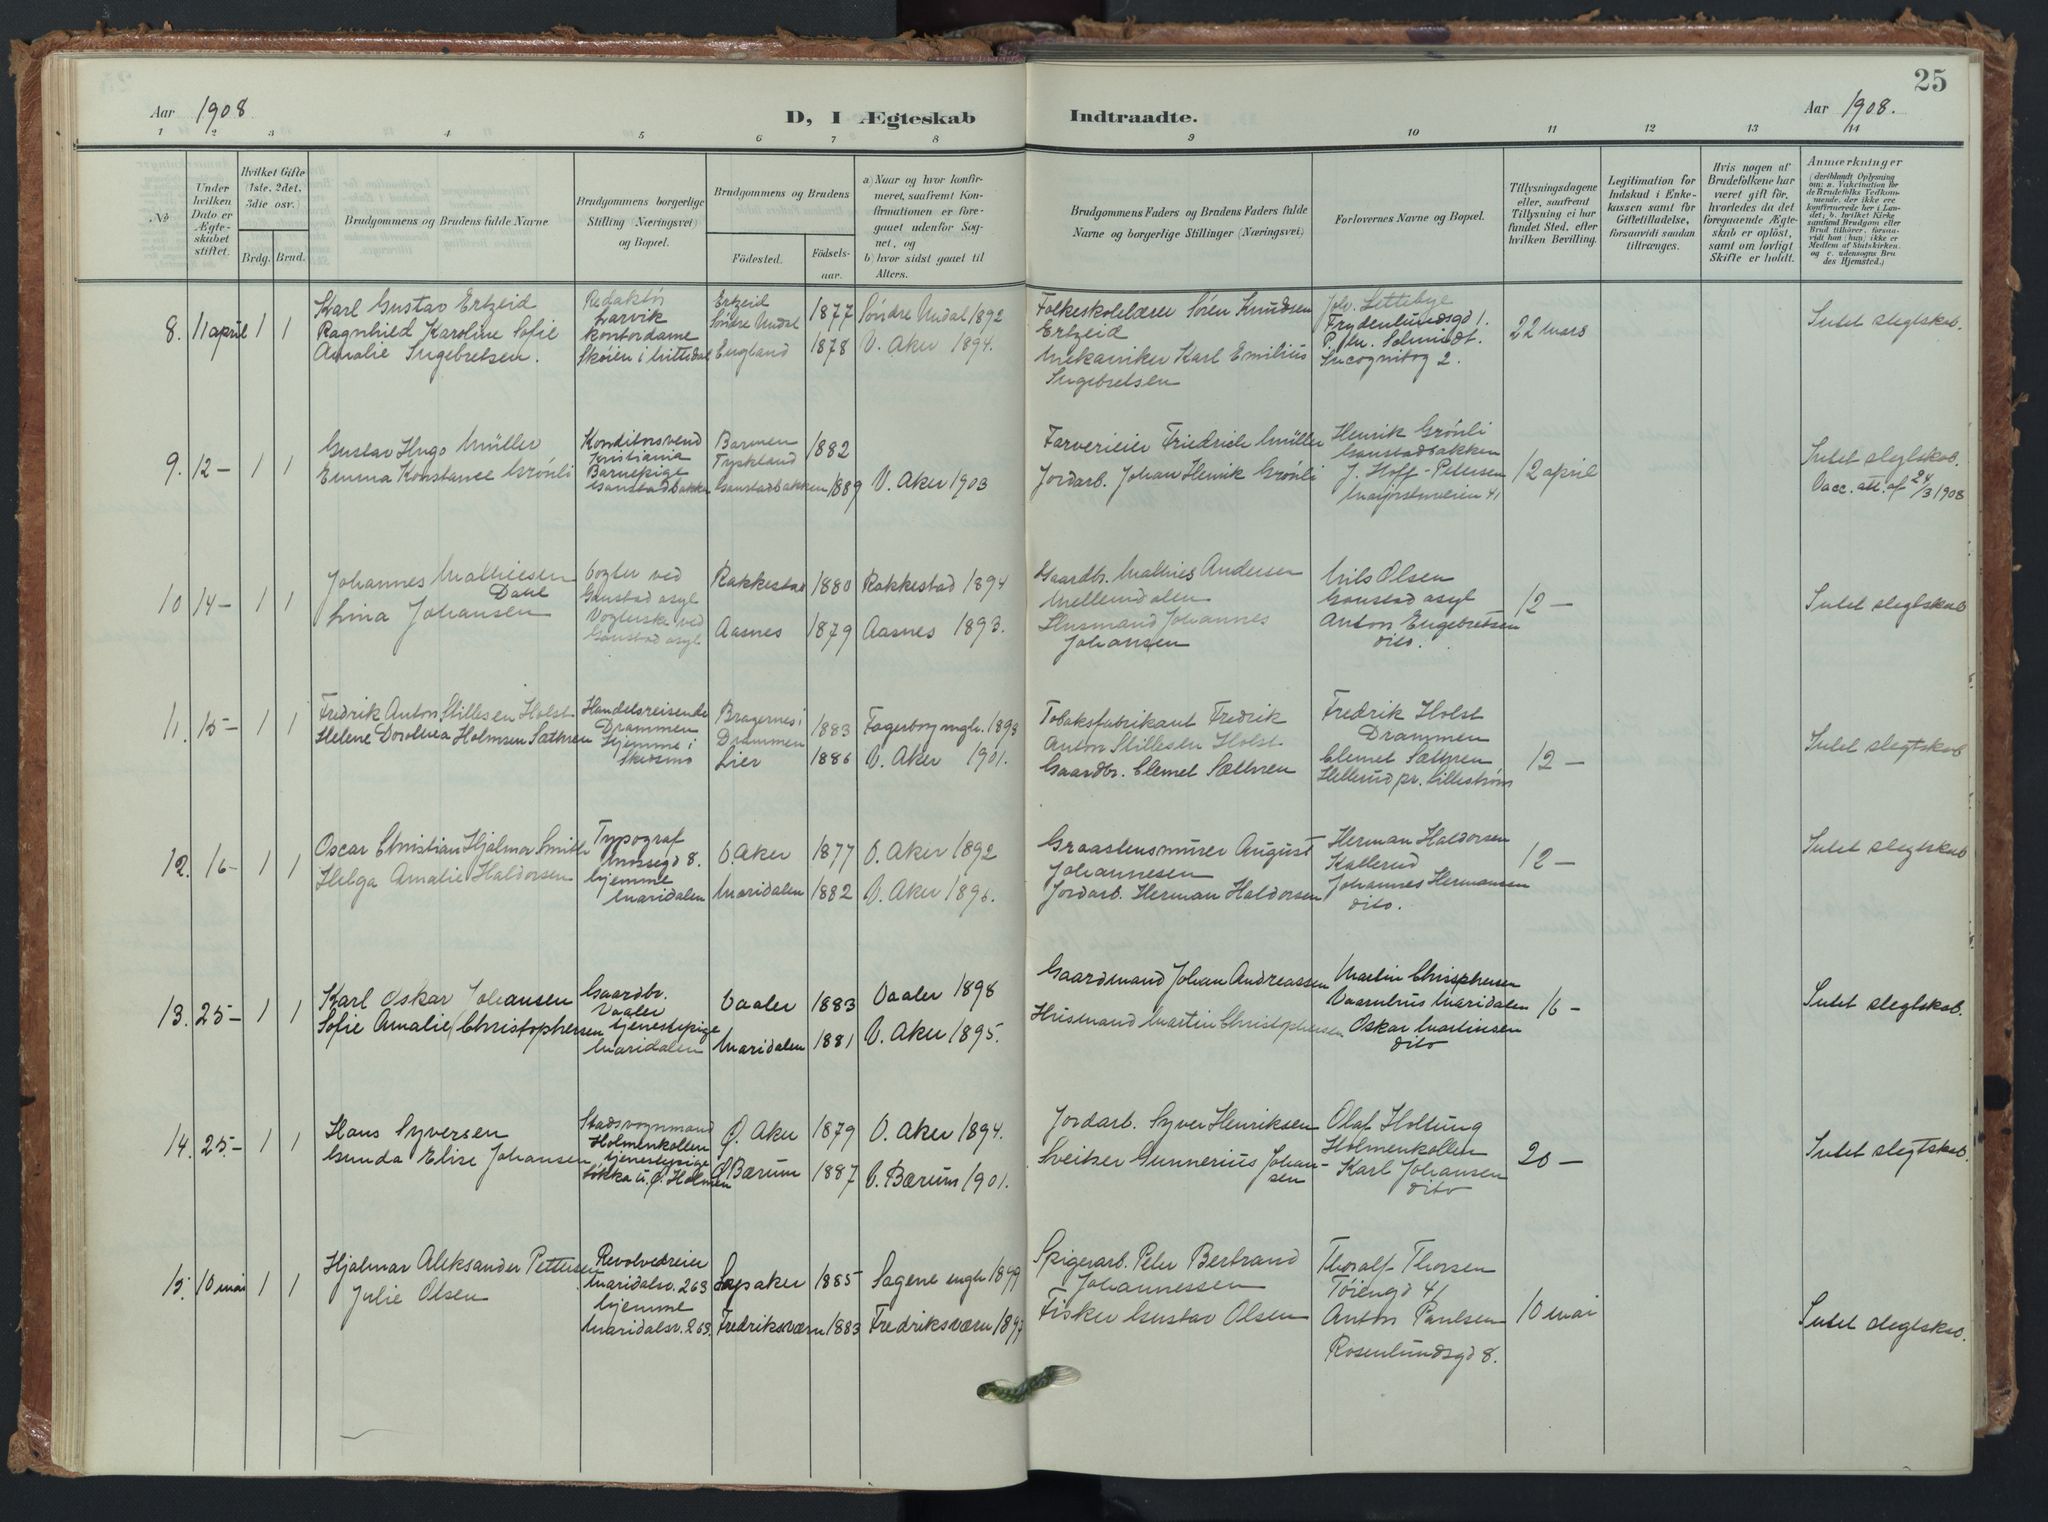 25
Aar 1908
D, I Ægteskab Indtraadte.
Aar 1908.
1 2 3 4 5 6 7 8 9 10 11 12 13 14
No
Under hvilken Dato er Ægteskabet stiftet.
Hvilket Gifte (1ste, 2det, 3die osv.)
Brdg. Brud.
Brudgommens og Brudens fulde Navne.
Brudgommens borgerlige Stilling (Næringsvei) og Bopæl.
Brudgommens og Brudens
Fødested. Fødselsaar.
a) Naar og hvor konfirmeret, saafremt Konfirmationen er foregaaet udenfor Sognet, og
b) hvor sidst gaaet til Alters.
Brudgommens Faders og Brudens Faders fulde Navne og borgerlige Stillinger (Næringsvei)
Forlovernes Navne og Bopæl.
Tillysningsdagene eller, saafremt Tillysning ei har fundet Sted, efter hvilken Bevilling.
Legitimation for Indskud i Enkekassen samt for Giftetilladelse, forsaavidt saadan tiltrænges.
Hvis nogen af Brudefolkene har været gift før, hvorledes da det foregaaende Ægteskab er opløst, samt om lovligt Skifte er holdt.
Anmærkninger
(deriblandt Oplysning om: a. Vakcination for de Brudefolks Vedkommende, der ikke ere konfirmerede her i Landet; b. hvilket Kirkesamfund Brudgom eller Brud tilhører, forsaavidt han (hun) ikke er Medlem af Statskirken og c. udensogns Brudes Hjemsted.)
8. 11 april 1 1
Karl Gustav Ertzeid
Ragnhild Karoline Sofie
Amalie Ingebretsen.
Redaktør
Larvik
Kontordame
Skøien i
Ertzeid
Søndre Undal 1877
England 1878
Søndre Undal 1892
V. Aker 1894.
Folkeskolelærer Søren Knudsen
Ertzeid
Mekaniker Karl Emilius
Ingebretsen
Joh. Settebye
Frydenlundsgd 1.
Schmidt.
Incognitog 2.
22 mars
Intet slegtskab.
9. 12 – 1 1
Gustav Hugo Müller
Emma Konstance Grønli
Konditorsvend
Kristiania
Barnepige
Gaustadbakken
Barmen
Tyskland 1882
Gaustadbakken 1889
V. Aker 1903
Farverieier Friedrich Müller
Jordarb. Johan Henrik Grønli
Henrik Grønli
Gaustadbakken
J. Hoff-Petersen
Majorstuveien 41
12 april
Intet slegtskab.
Vacc. att. af 24/3 1908
10 14 – 1 1
Johannes Mathiesen
Dahl
Lina Johansen
Vogter ved
Gaustad asyl
Vogterske ved
Gaustad asyl
Rakkestad 1880
Aasnes 1879
Rakkestad 1894
Aasnes 1893.
Gaardbr. Mathies Andersen
Mellemdalen
Husmand Johannes
Johansen
Nils Olsen
Gaustad asyl
Anton Engebretsen
dito.
12 –
Intet slegtskab
11. 15 – 1 1
Fredrik Anton Stillesen Holst
Helene Dorothea Holmsen Sæthren
Handelsreisende
Drammen
Hjemme i
Skedsmo
Bragernes i
Drammen 1883
Lier 1886
Fagerborg mgh. 1898
V. Aker 1901.
Tobaksfabrikant Fredrik
Anton Stillesen Holst
Gaardbr. Clemet Sæthren
Fredrik Holst
Drammen
Clemet Sæthren
Hellerud pr. Lillestrøm
12 –
Intet slegtskab
12. 16 – 1 1
Oscar Christian Hjalmar Smith
Helga Amalie Haldorsen
Typograf
Mossegd 8.
hjemme
Maridalen
V. Aker 1877
Maridalen 1882
V. Aker 1892
V. Aker 1896.
Graastensmurer August
Johannesen
Jordarb. Herman Haldorsen
Herman Haldorsen
Kallerud
Johannes Hermansen
dito.
12 –
Intet slegtskab
13. 25 – 1 1
Karl Oskar Johansen
Sofie Amalie Christophersen
Gaardbr.
Vaaler
tjenestepige
Maridalen
Vaaler 1883
Maridalen 1881
Vaaler 1898
V. Aker 1895.
Gaardmand Johan Andreassen
Husmand Martin Christophersen
Martin
Maridalen
Oskar Martinsen
dito
16 –
Intet slegtskab.
14. 25 – 1 1
Hans Syversen
Gunda Elise Johansen
Stadsvognmand
Holmenkollen
tjenestepige
Løkka u. Ø. Holmen
Ø. Aker 1879
Ø. Bærum 1887
V. Aker 1894.
V. Bærum 1901.
Jordarb. Syver Henriksen
Sveiser Gunnerius Johansen
Olaf Holtung
Holmenkollen
Karl Johansen
dito
20 –
Intet slegtskab.
15. 10 mai 1 1
Hjalmar Aleksander Pettersen
Julie Olsen
Revolverdreier
Maridalsv. 263
hjemme
Maridalsv. 263.
Lysaker 1885
Fredriksværn 1883
Sagene mgh 1899
Fredriksværn 1897
Spigerarb. Peter Bertrand
Johannessen
Fisker Gustav Olsen
Thoralf Thorsen
Tøiengd 41
Anton Paulsen
Rosenlundsgd 8.
10 mai
Intet slegtskab.